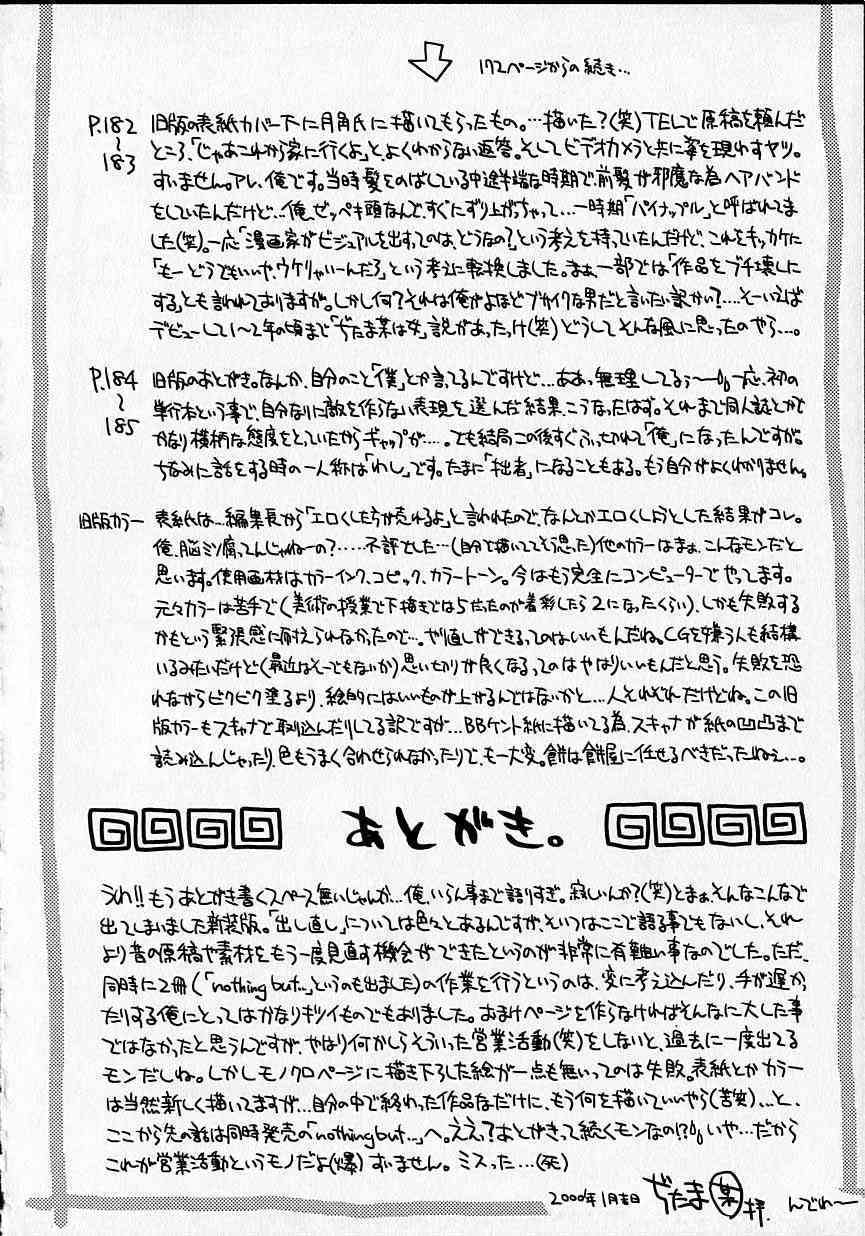 172ページからの続き…
P.182
〜
183
旧版の表紙カバー下に月角氏に描いてもらったもの。…描いた?(笑)TELで原稿を頼んだ
ところ、「じゃあこれから家に行くよ」と、よくわからない返答。そしてビデオカメラと共に姿を現わすヤツ。
すいません。アレ、俺です。当時髪をのばしている中途半端な時期で前髪が邪魔な為ヘアバンド
をしていたんだけど…俺、ゼッペキ頭なんで、すぐにずり上がっちゃって…一時期「パイナップル」と呼ばれてま
した(笑)。一応「漫画家がビジュアルを出すってのは、どうなの?」という考えを持っていたんだけど、これをキッカケに
「もーどうでもいいや、ウケりゃいーんだろ」という考えに転換しました。まぁ、一部では「作品をブチ壊しに
する」とも言われておりますが。しかし何?それは俺がよほどブカイクな男だと言いたい訳かい?…そーいえば
デビューして1〜2年の頃まで「ぢたま某は女」説があったっけ(笑)どうしてそんな風に思ったのやら…。
P.184
〜
185
旧版のあとがき。なんか、自分のこと「僕」とか言ってるんですけど…ああっ無理してるぅ〜一応、初の
単行本という事で、自分なりに敵を作らない表現を選んだ結果、こうなったはず。それまで同人誌とかで
かなり横柄な態度をとっていたからギャップが…。でも結局この後すぐふっきれて「俺」になったんですが。
ちなみに話をする時の一人称は「わし」です。たまに「拙者」になることもある。もう自分がよくわかりません。
旧版カラー
表紙は…編集長から「エロくした方が売れるよ」と言われたので、なんとかエロくしようとした結果がコレ。
俺、脳ミソ腐ってんじゃねーの?……不評でした…(自分で描いててそう思った)他のカラーはまぁ、こんなモンだと
思います。使用画材はカラーインク、コピック、カラートーン。今はもう完全にコンピューターでやってます。
元々カラーは苦手で(美術の授業で下描きでは5だったのが着彩したら2になったくらい)、しかも失敗する
かもという緊張感に耐えられなかったので…。やり直しができるってのはいいもんだね。CGを嫌う人も結構
いるみたいだけど(最近はそーでもないか)思い切りが良くなるってのはやはりいいもんだと思う。失敗を恐
れながらビクビク塗るより、絵的にはいいものが上がるんではないかと…人それぞれだけどね。この旧
版カラーもスキャナで取り込んだりしてる訳ですが…BBケント紙に描いてる為、スキャナが紙の凹凸まで
読み込んじゃったり、色もうまく合わせられなかったりで、モー大変。餅は餅屋に任せるべきだったねぇ…。
あとがき。
うわ!!もうあとがき書くスペース無いじゃんか…俺、いらん事まで語りすぎ。寂しいんか?(笑)とまぁ、そんなこんなで
出てしまいました新装版。「出し直し」については色々とあるんですが、そいつはここで語る事でもないし、それ
より昔の原稿や素材をもう一度見直す機会ができたというのが非常に有難い事なのでした。ただ、
同時に2冊(「nothing but…」というのも出ました)の作業を行うというのは、変に考え込んだり、手が遅か
ったりする俺にとってはかなりキツイものでもありました。おまけページを作らなければそんなに大した事
ではなかったと思うんですが、やはり何かしらそういった営業活動(笑)をしないと、過去に一度出てる
モンだしね。しかしモノクロページに描き下ろした絵が一点も無いってのは失敗。表紙とかカラー
は当然新しく描いてますが…自分の中で終わった作品なだけに、もう何を描いていいやら(苦笑)…と、
ここから先の話は同時発売の「nothing but…」へ。ええっ?あとがきって続くモンなの!?いや…だから
これが営業活動というモノだよ(爆)すいません。ミスった…(死)
2000年1月吉日 ぢたま某 拝. んでわ〜